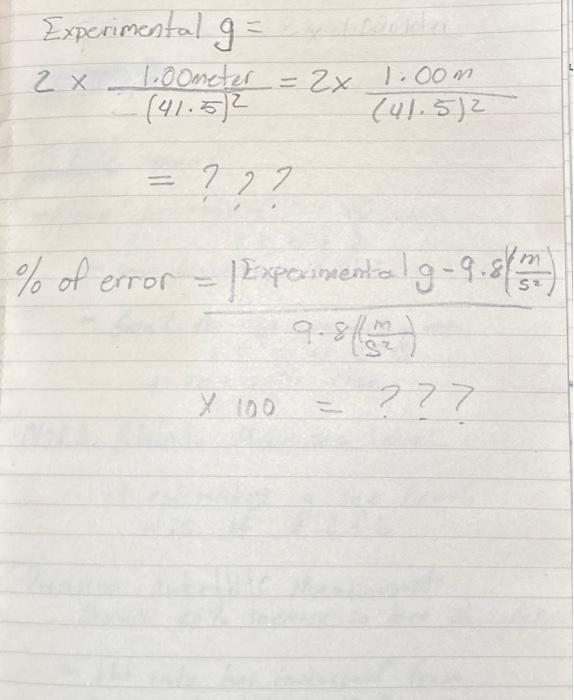 Experimental g =
2 x 1.00meter/(41.5)2 = 2x 1.00m/(41.5)2
= ? ? ?
% of error = |Experimental g - 9.8(m/s2)
9.8(m/s2)
x 100 = ? ? ?